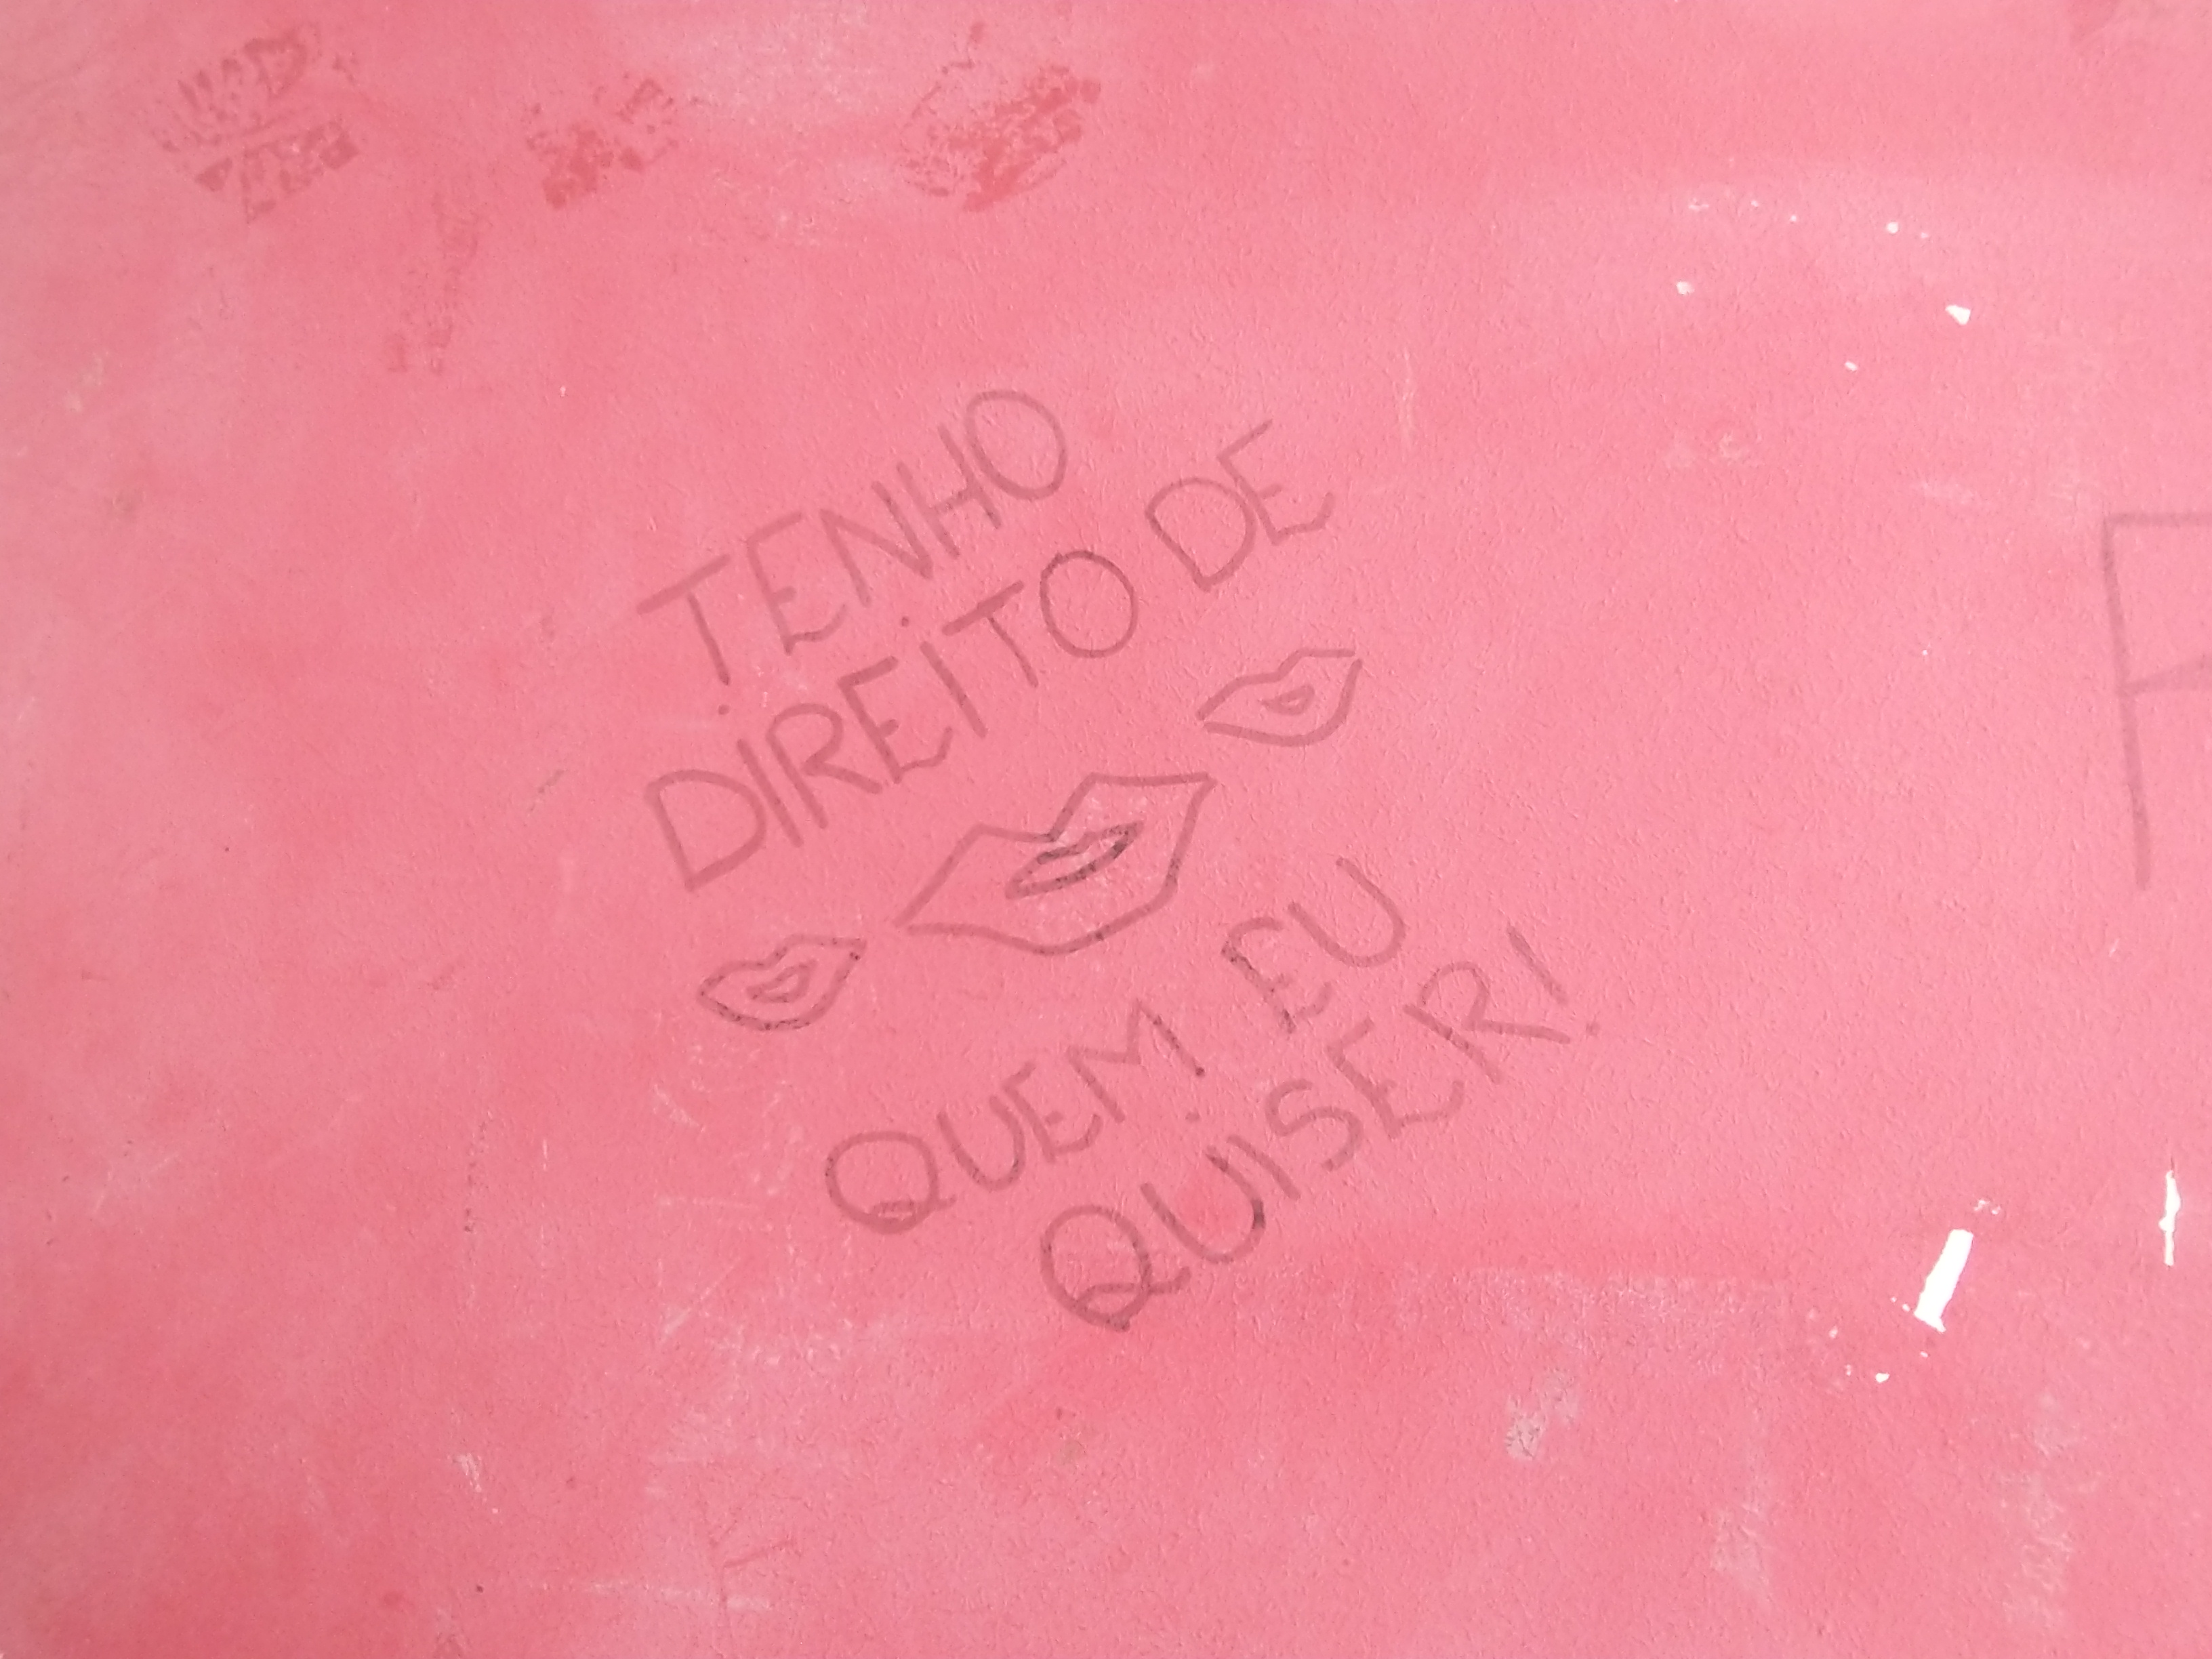 TENHO
DIREITO DE
QUEM EU
QUISER!